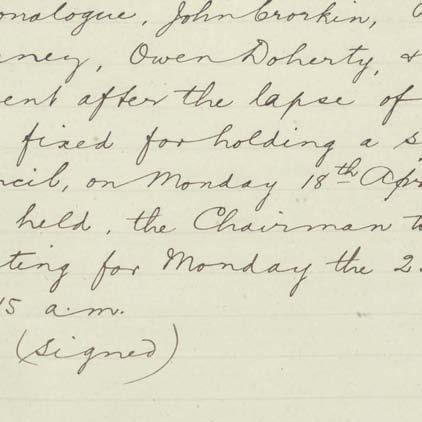 onalogue, John Crorkin,
ney, Owen Doherty, &
ent after the lapse of
fixed for holding a s
ncil, on Monday 18th Apr
held, the Chairman t
ting for Monday the 2
15 a.m.
(signed)